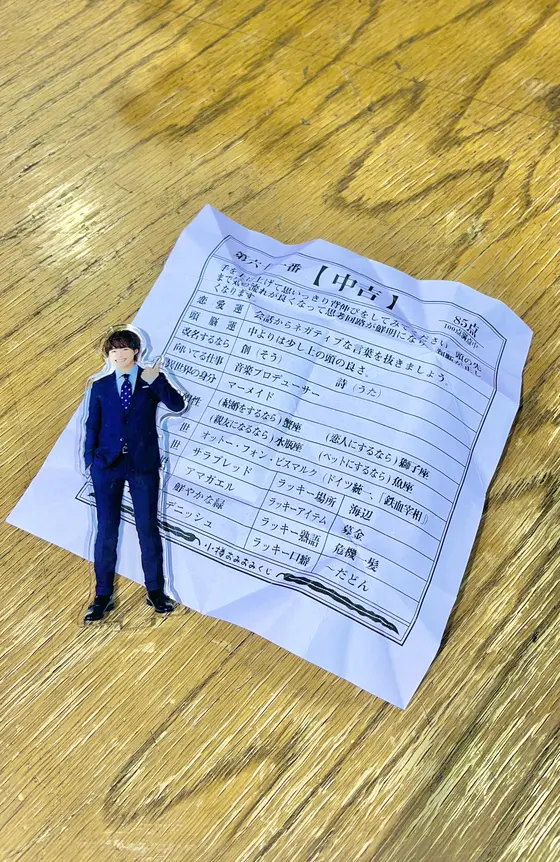 第六十一番 【中吉】 85点
100点満点中
手を上げて思いっきり背伸びをしてみてください。頭の先
まで気の流れが良くなって思考回路が鮮明になり
くなります。
恋愛運 会話からネガティブな言葉を抜きましょう。
頭脳運 中よりは少し上の頭の良さ。
改名するなら 創(そう) 詩(うた)
向いてる仕事 音楽プロデューサー
異世界の身分 マーメイド
性 (結婚をするなら)蟹座 (恋人にするなら)獅子座
(親友になるなら)水瓶座 (ペットにするなら)魚座
世 オットー・フォン・ビスマルク(ドイツ統一、「鉄血宰相」)
世 サラブレッド ラッキー場所 海辺
アマガエル ラッキーアイテム 募金
鮮やかな緑 ラッキー熟語 危機一髪
デニッシュ ラッキー口癖 〜だどん